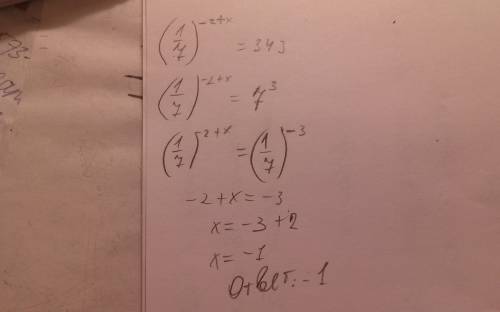 (1/7)^(-2+x) = 343
(1/7)^(-2+x) = 7^3
(1/7)^(-2+x) = (1/7)^(-3)
-2+x = -3
x = -3+2
x = -1
Ответ: -1
73.